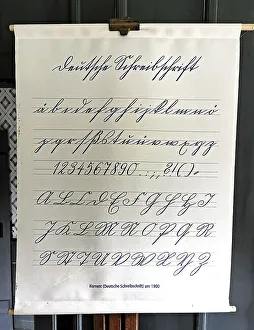 Deutsche Schreibschrift
äbcdefghijklmnö
pqrsßtuüvwxyz
1234567890.,;?!()„
ABCDEFGHI
JKLMNOPQR
STUVWXYZ
Kurrent (Deutsche Schreibschrift) um 1900